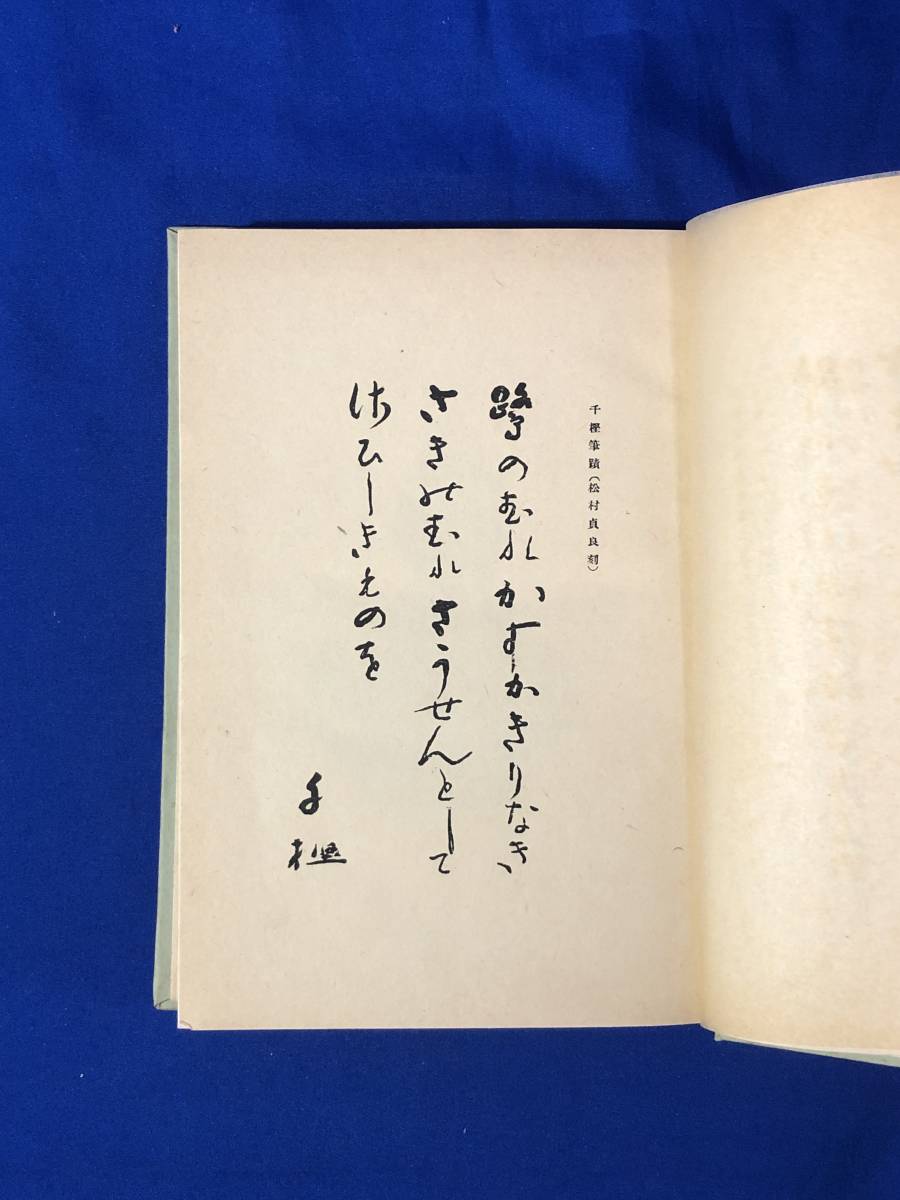 千樫筆蹟（松村貞良刻）
鷺のむれかすかきりなき
さきのむれさうせんとして
さひしきものを
千樫